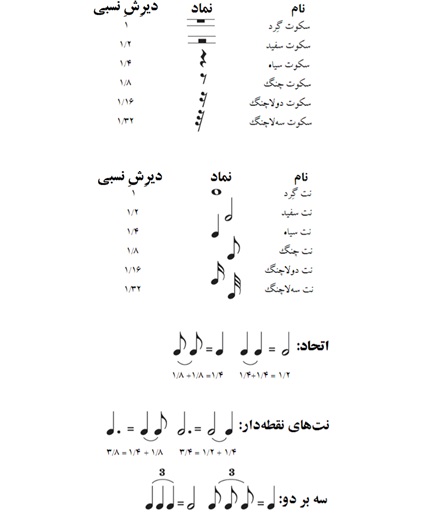 نام نماد دیرشِ نسبی
سکوت گِرد ۱
سکوت سفید ۱/۲
سکوت سیاه ۱/۴
سکوت چنگ ۱/۸
سکوت دولاچنگ ۱/۱۶
سکوت سه‌لاچنگ ۱/۳۲
نام نماد دیرشِ نسبی
نت گِرد ۱
نت سفید ۱/۲
نت سیاه ۱/۴
نت چنگ ۱/۸
نت دولاچنگ ۱/۱۶
نت سه‌لاچنگ ۱/۳۲
اتحاد: = =
۱/۸ +۱/۸ =۱/۴ ۱/۴+۱/۴ = ۱/۲
نت‌های نقطه‌دار: = =
۳/۸ = ۱/۴ + ۱/۸ ۳/۴ = ۱/۲ + ۱/۴
3 3
سه بر دو: = =